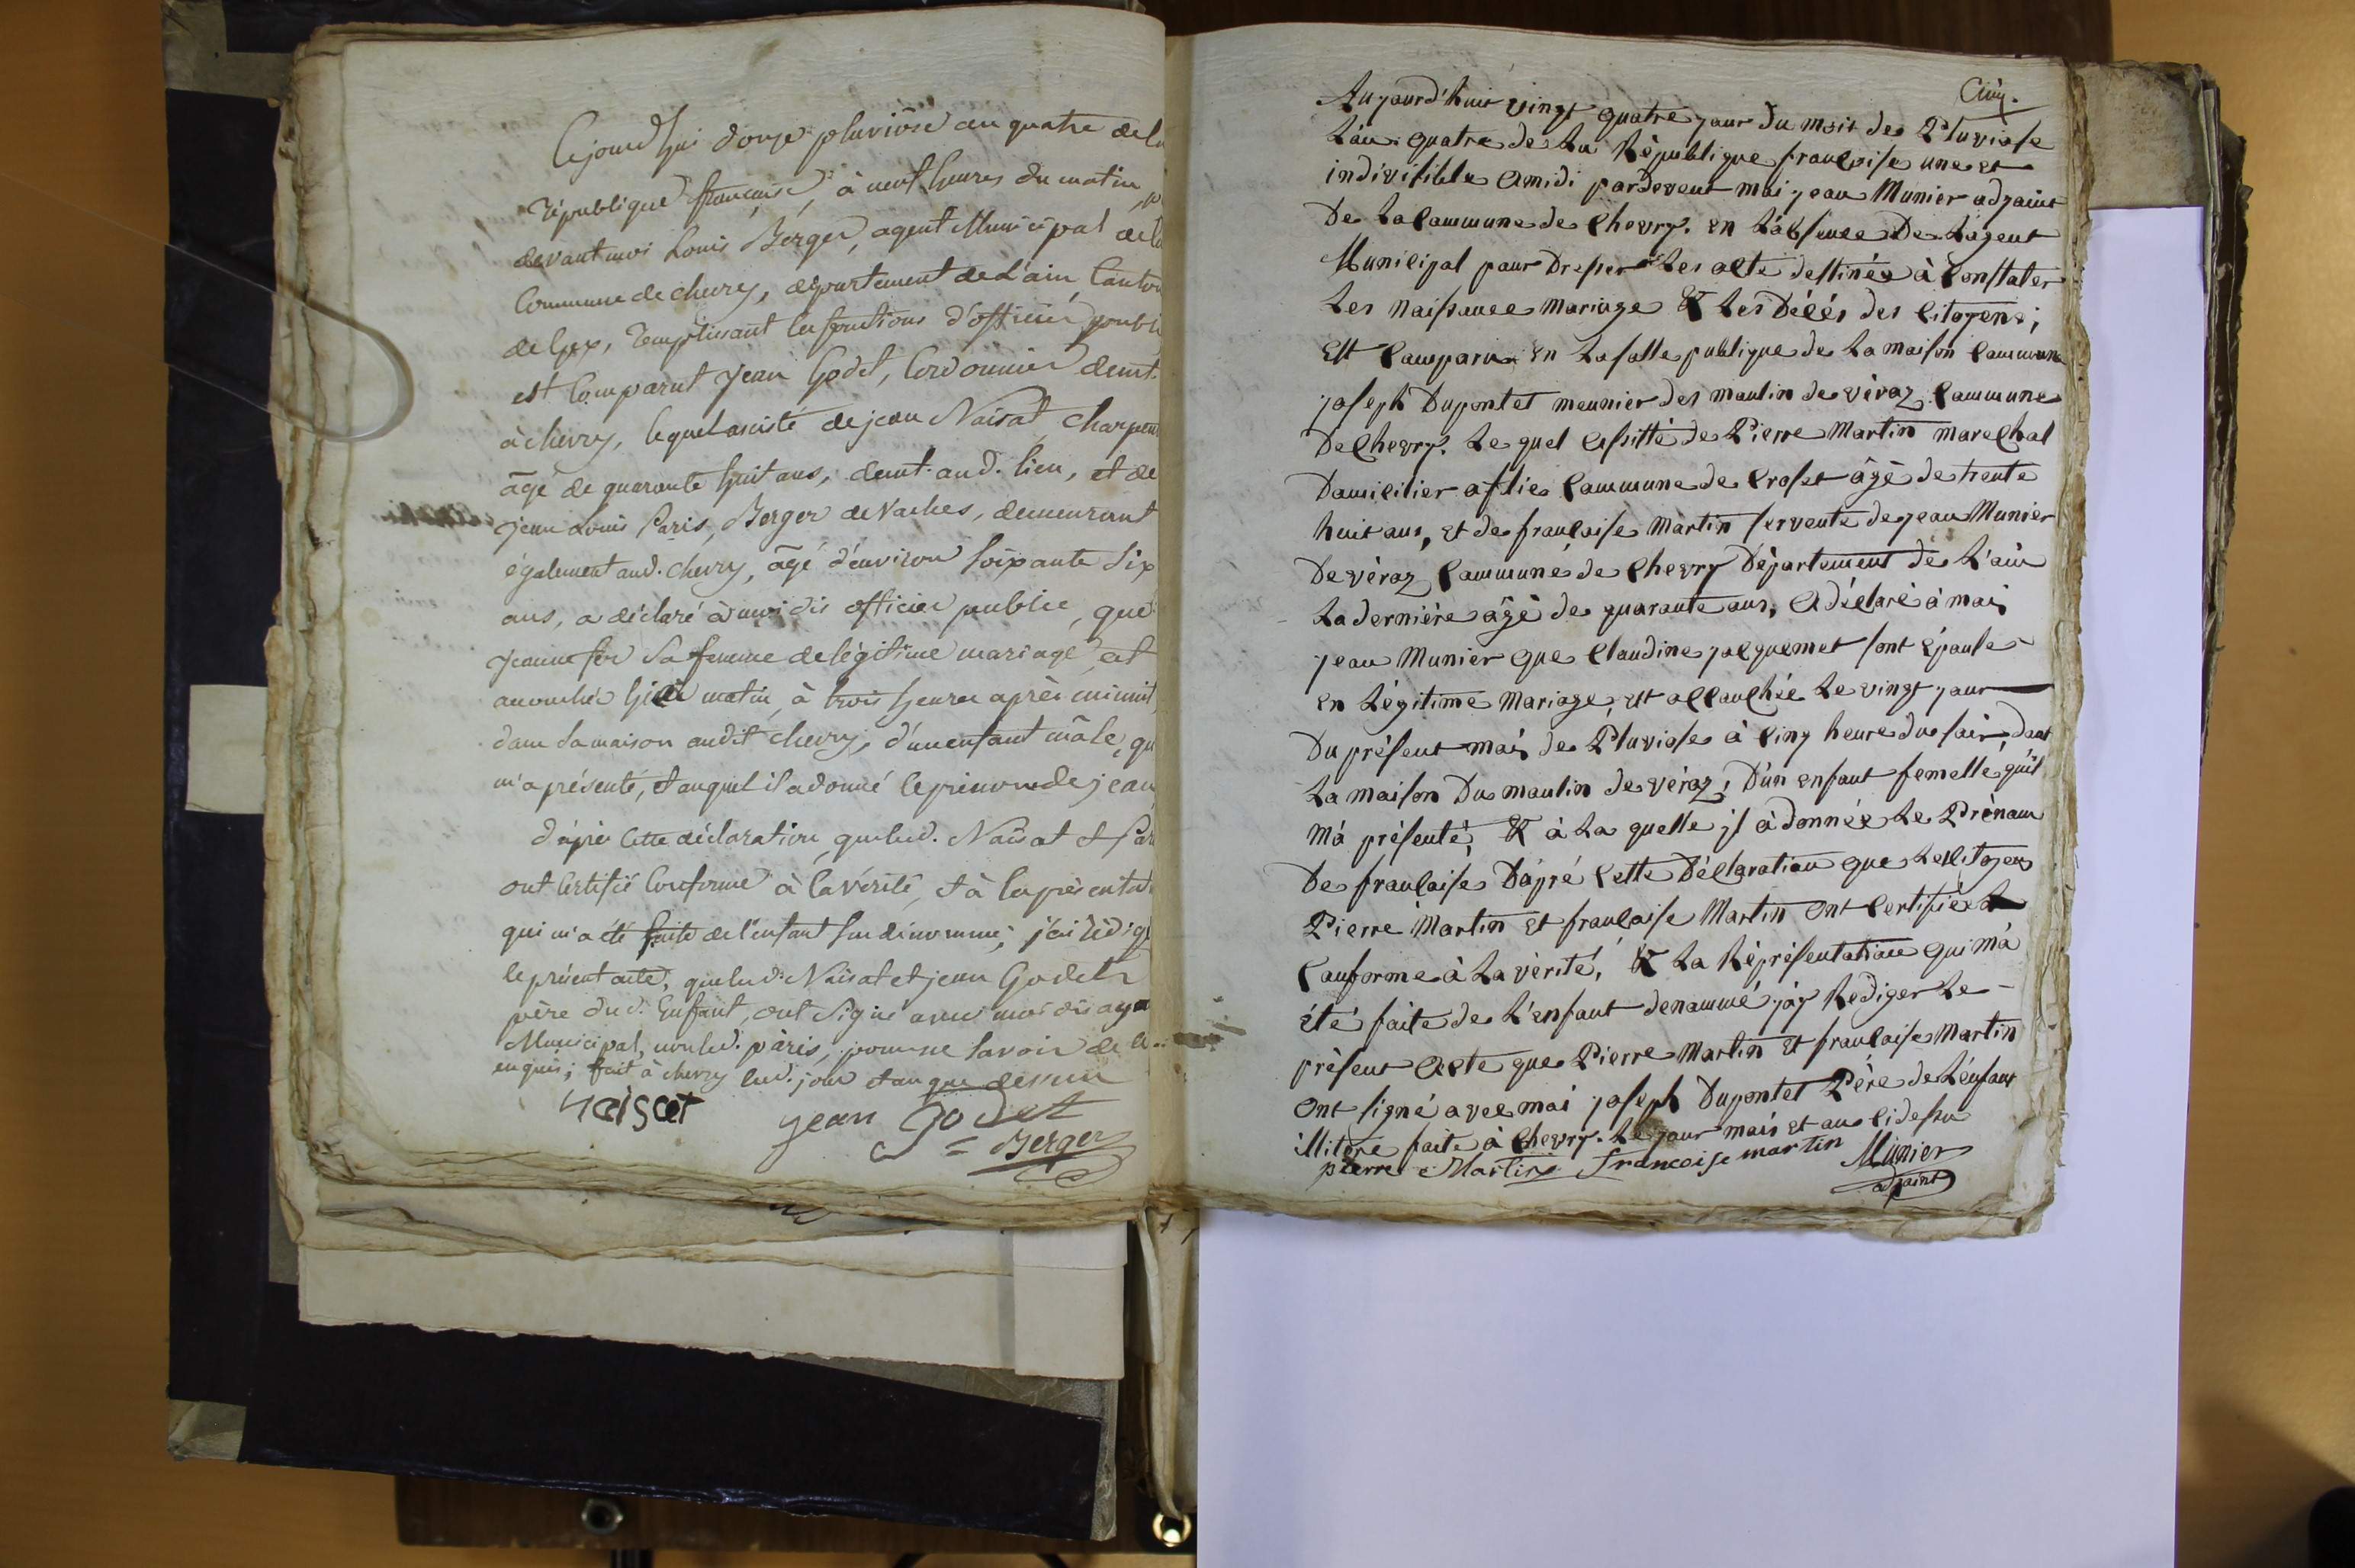 Cejourd'hui douze pluviôse an quatre de la
République française, à neuf heures du matin, p
devant moi Louis Berger, agent Municipal de la
Commune de chevry, département de L'ain Canton
de Gex, Remplissant les fonctions d'officier public
est Comparut Jean Godet, Cordonnier demt.
à chevry, lequel assisté de jean Naisat Charpen
âgé de quarante huit ans, demt. aud. lieu, et de
Jean Louis Paris, Berger de Vaches, demeurant
également aud. chevry, âgé d'environ soixante six
ans, a déclaré à moi dit officier public, que
Jeanne fer sa femme de légitime mariage est
accouchée hier matin, à trois heures après minuit,
dans sa maison audit chevry, d'un enfant mâle, qu
m'a présenté, et auquel il a donné le prénom de jean
d'après Cette déclaration, que led. Naisat & Par
ont Certifié Conforme à la vérité, et à la présentat
qui m'a été faite de l'enfant sus dénommé; j'ai rédigé
le présent acte, que led. Naisat et jean Godet
père dud. Enfant, ont Signé avec moi dit agen
Municipal, non led. pâris, pour ne savoir de ce
enquis; fait à chevry led. jour et an que dessus
naisat jean Godet
Berger
Cinq.
Aujourd'hui vingt quatre jour du mois de Pluviose
L'an quatre de La République francoise une et
indivisible a midi pardevent moi jean Munier adjoint
De La Commune de Chevry. en L'absence De L'agent
Municipal pour Dresser Les acte destinée à Constater
Les Naissance mariage & Les Décés des Citoyens;
Est Comparu en La salle publique de La maison Commune
joseph Dupontet meunier des moulin de véraz Commune
De Chevry. Le quel assitté de Pierre Martin marechal
Domicilier aflie Commune de Croset âgé de trente
huit ans, et de francoise Martin servente de jean Munier
De véraz Commune de Chevry Département de L'ain
La dernière âgé de quarante ans, a déclaré à moi
jean Munier que Claudine jacquemet sont épouse
en Légitime Mariage, est accouchée Le vingt jour
Du présent moi de Pluviose à Cinq heure du soir, dant
La maison Du moulin de véraz, D'un enfant femelle qu'il
M'à présenté, & à La quelle jl à donnée Le Prénom
De francoise D'apré Cette Déclaration que Les Citoyen
Pierre Martin et francoise Martin ont Certifié
Conforme à La vérité, & La Réprésentation qui m'à
été faite de L'enfant denommé j'ay Rediger Le
présent Acte que Pierre Martin et francoise Martin
ont signé avec moi joseph Dupontet Père de L'enfant
illitère faite à Chevry. Le jour mois et an Cidessu
pierre Martin francoise martin Munier
adjoint